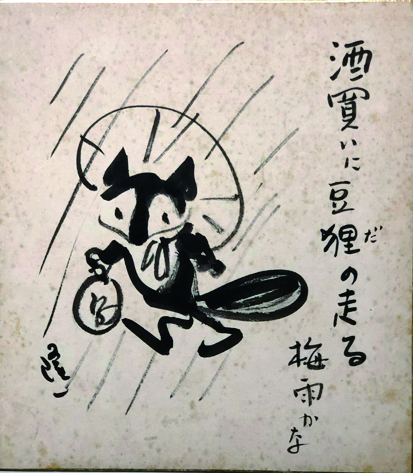 酒買いに豆狸の走る
だ
梅雨かな
隆一